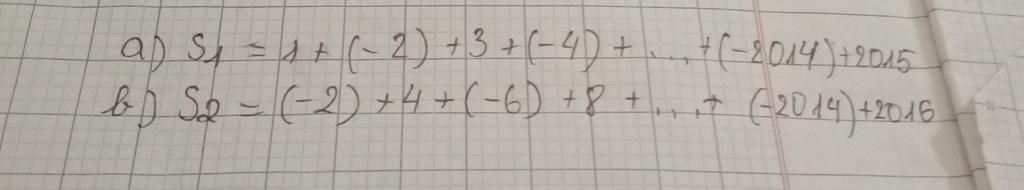 a) S1 = 1 + (-2) + 3 + (-4) + ... + (-2014) + 2015
b) S2 = (-2) + 4 + (-6) + 8 + ... + (-2014) + 2016